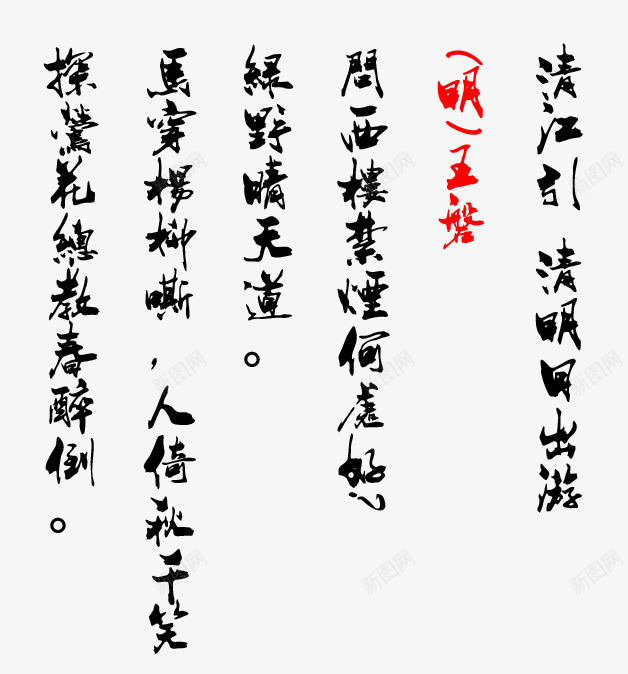 清江引 清明日出游
(明)王磐
問西樓禁煙何處好?
綠野晴天道。
馬穿楊柳嘶,人倚秋千笑
探鶯花總教春醉倒。
新图网
新图网
新图网
新图网
新图网
新图网
新图网
新图网
新图网